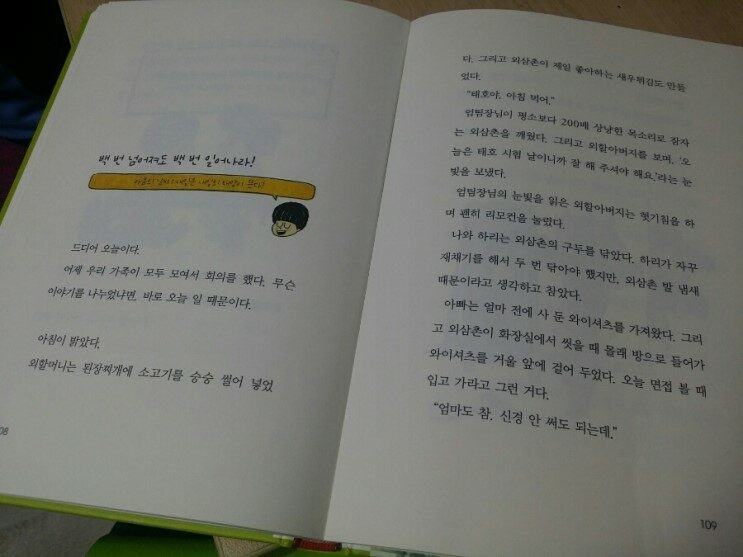 백 번 넘어져도 백 번 일어나라!
드디어 오늘이다.
어제 우리 가족이 모두 모여서 회의를 했다. 무슨
이야기를 나누었냐면, 바로 오늘 일 때문이다.
아침이 밝았다.
외할머니는 된장찌개에 소고기를 숭숭 썰어 넣었
08
다. 그리고 외삼촌이 제일 좋아하는 새우튀김도 만들
었다.
"태호야, 아침 먹어."
엄텀장님이 평소보다 200배 상냥한 목소리로 잠자
는 외삼촌을 깨웠다. 그리고 외할아버지를 보며, '오
늘은 태호 시험 날이니까 잘 해 주셔야 해요.'라는 눈
빛을 보냈다.
엄텀장님의 눈빛을 읽은 외할아버지는 헛기침을 하
며 괜히 리모컨을 눌렀다.
나와 하리는 외삼촌의 구두를 닦았다. 하리가 자꾸
재채기를 해서 두 번 닦아야 했지만, 외삼촌 발 냄새
때문이라고 생각하고 참았다.
아빠는 얼마 전에 사 둔 와이셔츠를 가져왔다. 그리
고 외삼촌이 화장실에서 씻을 때 몰래 방으로 들어가
와이셔츠를 거울 앞에 걸어 두었다. 오늘 면접 볼 때
입고 가라고 그런 거다.
"엄마도 참. 신경 안 써도 되는데."
109